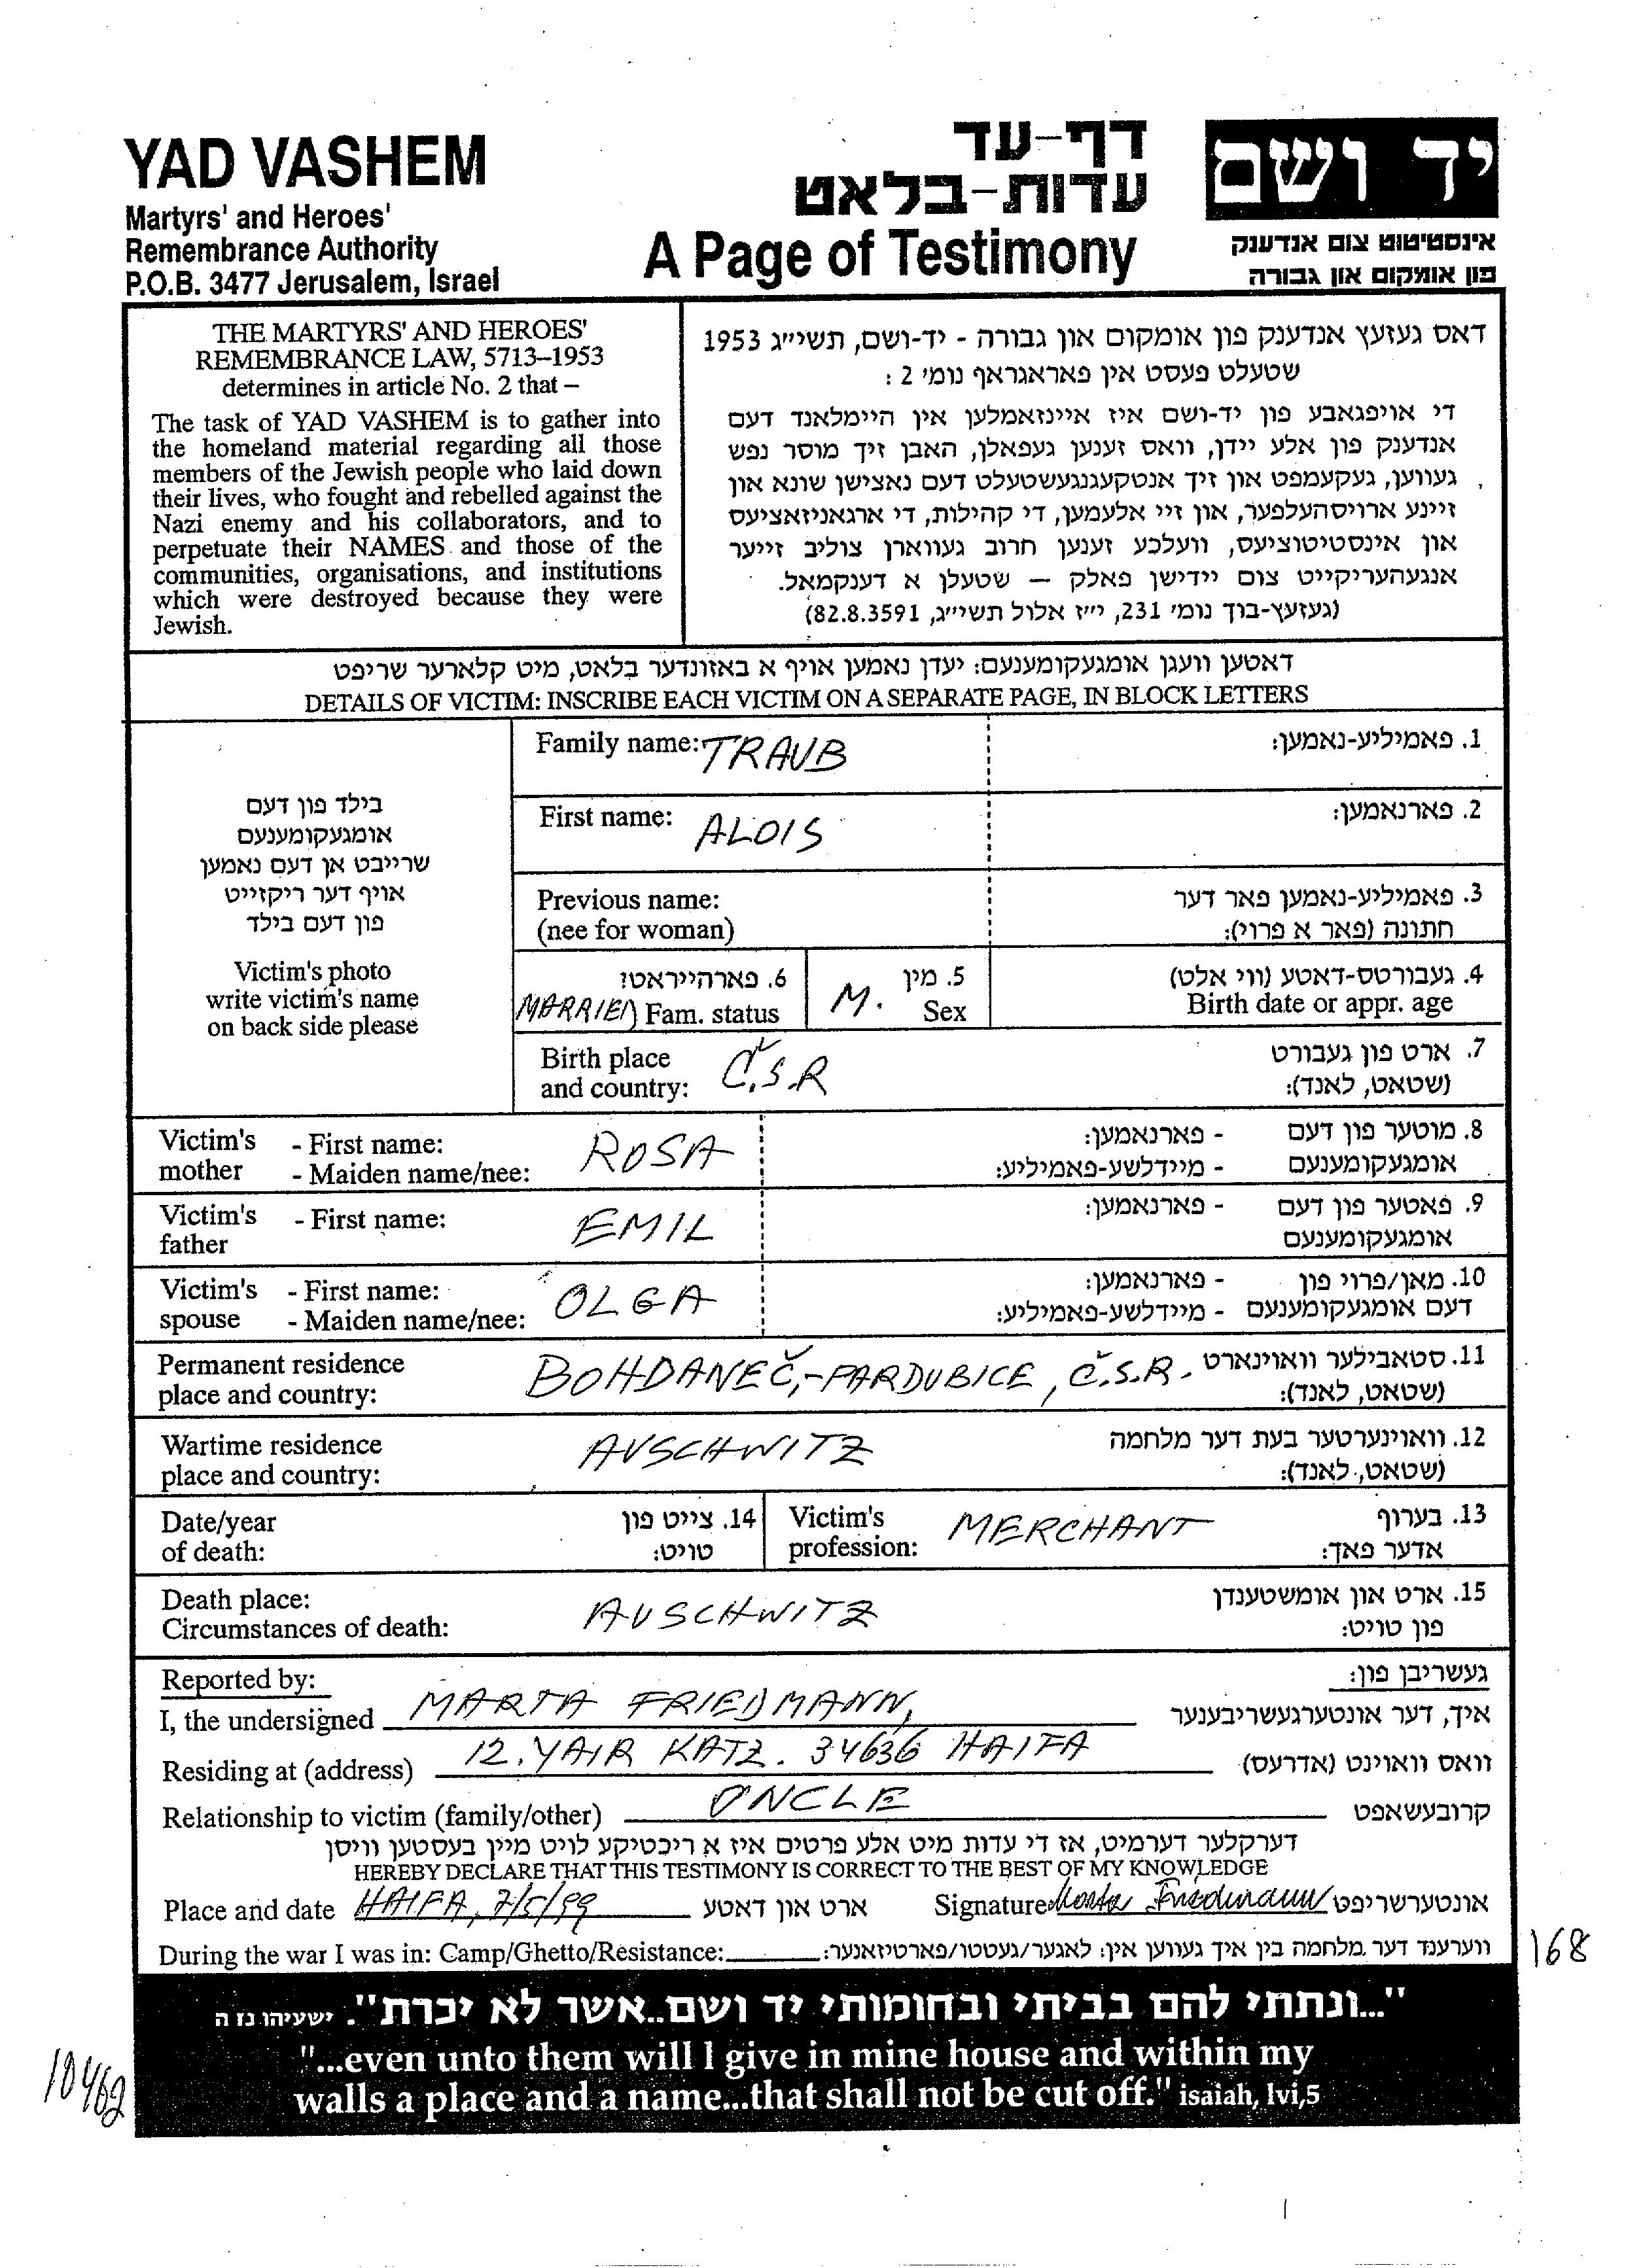 YAD VASHEM
Martyrs' and Heroes'
Remembrance Authority
P.O.B. 3477 Jerusalem, Israel
דף-עד
עדות-בלאט
A Page of Testimony
יד ושם
אינסטיטוט צום אנדענק
פון אומקום און גבורה
THE MARTYRS' AND HEROES'
REMEMBRANCE LAW, 5713–1953
determines in article No. 2 that –
The task of YAD VASHEM is to gather into
the homeland material regarding all those
members of the Jewish people who laid down
their lives, who fought and rebelled against the
Nazi enemy and his collaborators, and to
perpetuate their NAMES and those of the
communities, organisations, and institutions
which were destroyed because they were
Jewish.
דאס געזעץ אנדענק פון אומקום און גבורה - יד-ושם, תשי״ג 1953
שטעלט פעסט אין פאראגראף נומ׳ 2 :
די אויפגאבע פון יד-ושם איז איינזאמלען אין היימלאנד דעם
אנדענק פון אלע יידן, וואס זענען געפאלן, האבן זיך מוסר נפש
געווען, געקעמפט און זיך אנטקעגנגעשטעלט דעם נאצישן שונא און
זיינע ארויסהעלפער, און זיי אלעמען, די קהילות, די ארגאניזאציעס
און אינסטיטוציעס, וועלכע זענען חרוב געווארן צוליב זייער
אנגעהעריקייט צום יידישן פאלק – שטעלן א דענקמאל.
(געזעץ-בוך נומ׳ 231, י״ז אלול תשי״ג, 82.8.3591)
דאטען וועגן אומגעקומענעם: יעדן נאמען אויף א באזונדער בלאט, מיט קלארער שריפט
DETAILS OF VICTIM: INSCRIBE EACH VICTIM ON A SEPARATE PAGE, IN BLOCK LETTERS
בילד פון דעם
אומגעקומענעם
שרייבט אן דעם נאמען
אויף דער ריקזייט
פון דעם בילד
Victim's photo
write victim's name
on back side please
Family name: TRAUB 1. פאמיליע-נאמען:
First name: ALOIS 2. פארנאמען:
Previous name: 3. פאמיליע-נאמען פאר דער
(nee for woman) חתונה (פאר א פרוי):
6. פארהייראט? 5. מין 4. געבורטס-דאטע (ווי אלט)
MARRIED Fam. status M. Sex Birth date or appr. age
Birth place 7. ארט פון געבורט
and country: Č.S.R (שטאט, לאנד):
Victim's - First name: ROSA - פארנאמען: 8. מוטער פון דעם
mother - Maiden name/nee: - מיידלשע-פאמיליע: אומגעקומענעם
Victim's - First name: EMIL - פארנאמען: 9. פאטער פון דעם
father אומגעקומענעם
Victim's - First name: OLGA - פארנאמען: 10. מאן/פרוי פון
spouse - Maiden name/nee: - מיידלשע-פאמיליע: דעם אומגעקומענעם
Permanent residence BOHDANEČ,-PARDUBICE, Č.S.R. 11. סטאבילער וואוינארט
place and country: (שטאט, לאנד):
Wartime residence AUSCHWITZ 12. וואוינערטער בעת דער מלחמה
place and country: (שטאט, לאנד):
Date/year 14. צייט פון Victim's MERCHANT 13. בערוף
of death: טויט: profession: אדער פאך:
Death place: AUSCHWITZ 15. ארט און אומשטענדן
Circumstances of death: פון טויט:
Reported by: געשריבן פון:
I, the undersigned MARTA FRIEDMANN, איך, דער אונטערגעשריבענער
Residing at (address) 12. YAIR KATZ. 34636 HAIFA וואס וואוינט (אדרעס)
Relationship to victim (family/other) ONCLE קרובעשאפט
דערקלער דערמיט, אז די עדות מיט אלע פרטים איז א ריכטיקע לויט מיין בעסטען וויסן
HEREBY DECLARE THAT THIS TESTIMONY IS CORRECT TO THE BEST OF MY KNOWLEDGE
Place and date HAIFA, 7/5/99 ארט און דאטע Signature Marta Friedmann אונטערשריפט
During the war I was in: Camp/Ghetto/Resistance: ווערענד דער מלחמה בין איך געווען אין: לאגער/געטטו/פארטיזאנער:
168
"...ונתתי להם בביתי ובחומותי יד ושם..אשר לא יכרת". ישעיהו נז ה
"...even unto them will I give in mine house and within my
walls a place and a name...that shall not be cut off." isaiah, lvi,5
10462